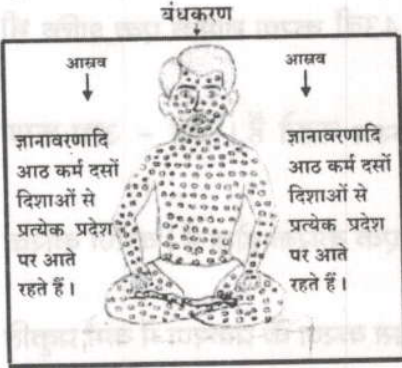 बंधकरण
आस्रव
ज्ञानावरणादि
आठ कर्म दसों
दिशाओं से
प्रत्येक प्रदेश
पर आते
रहते हैं।
आस्रव
ज्ञानावरणादि
आठ कर्म दसों
दिशाओं से
प्रत्येक प्रदेश
पर आते
रहते हैं।